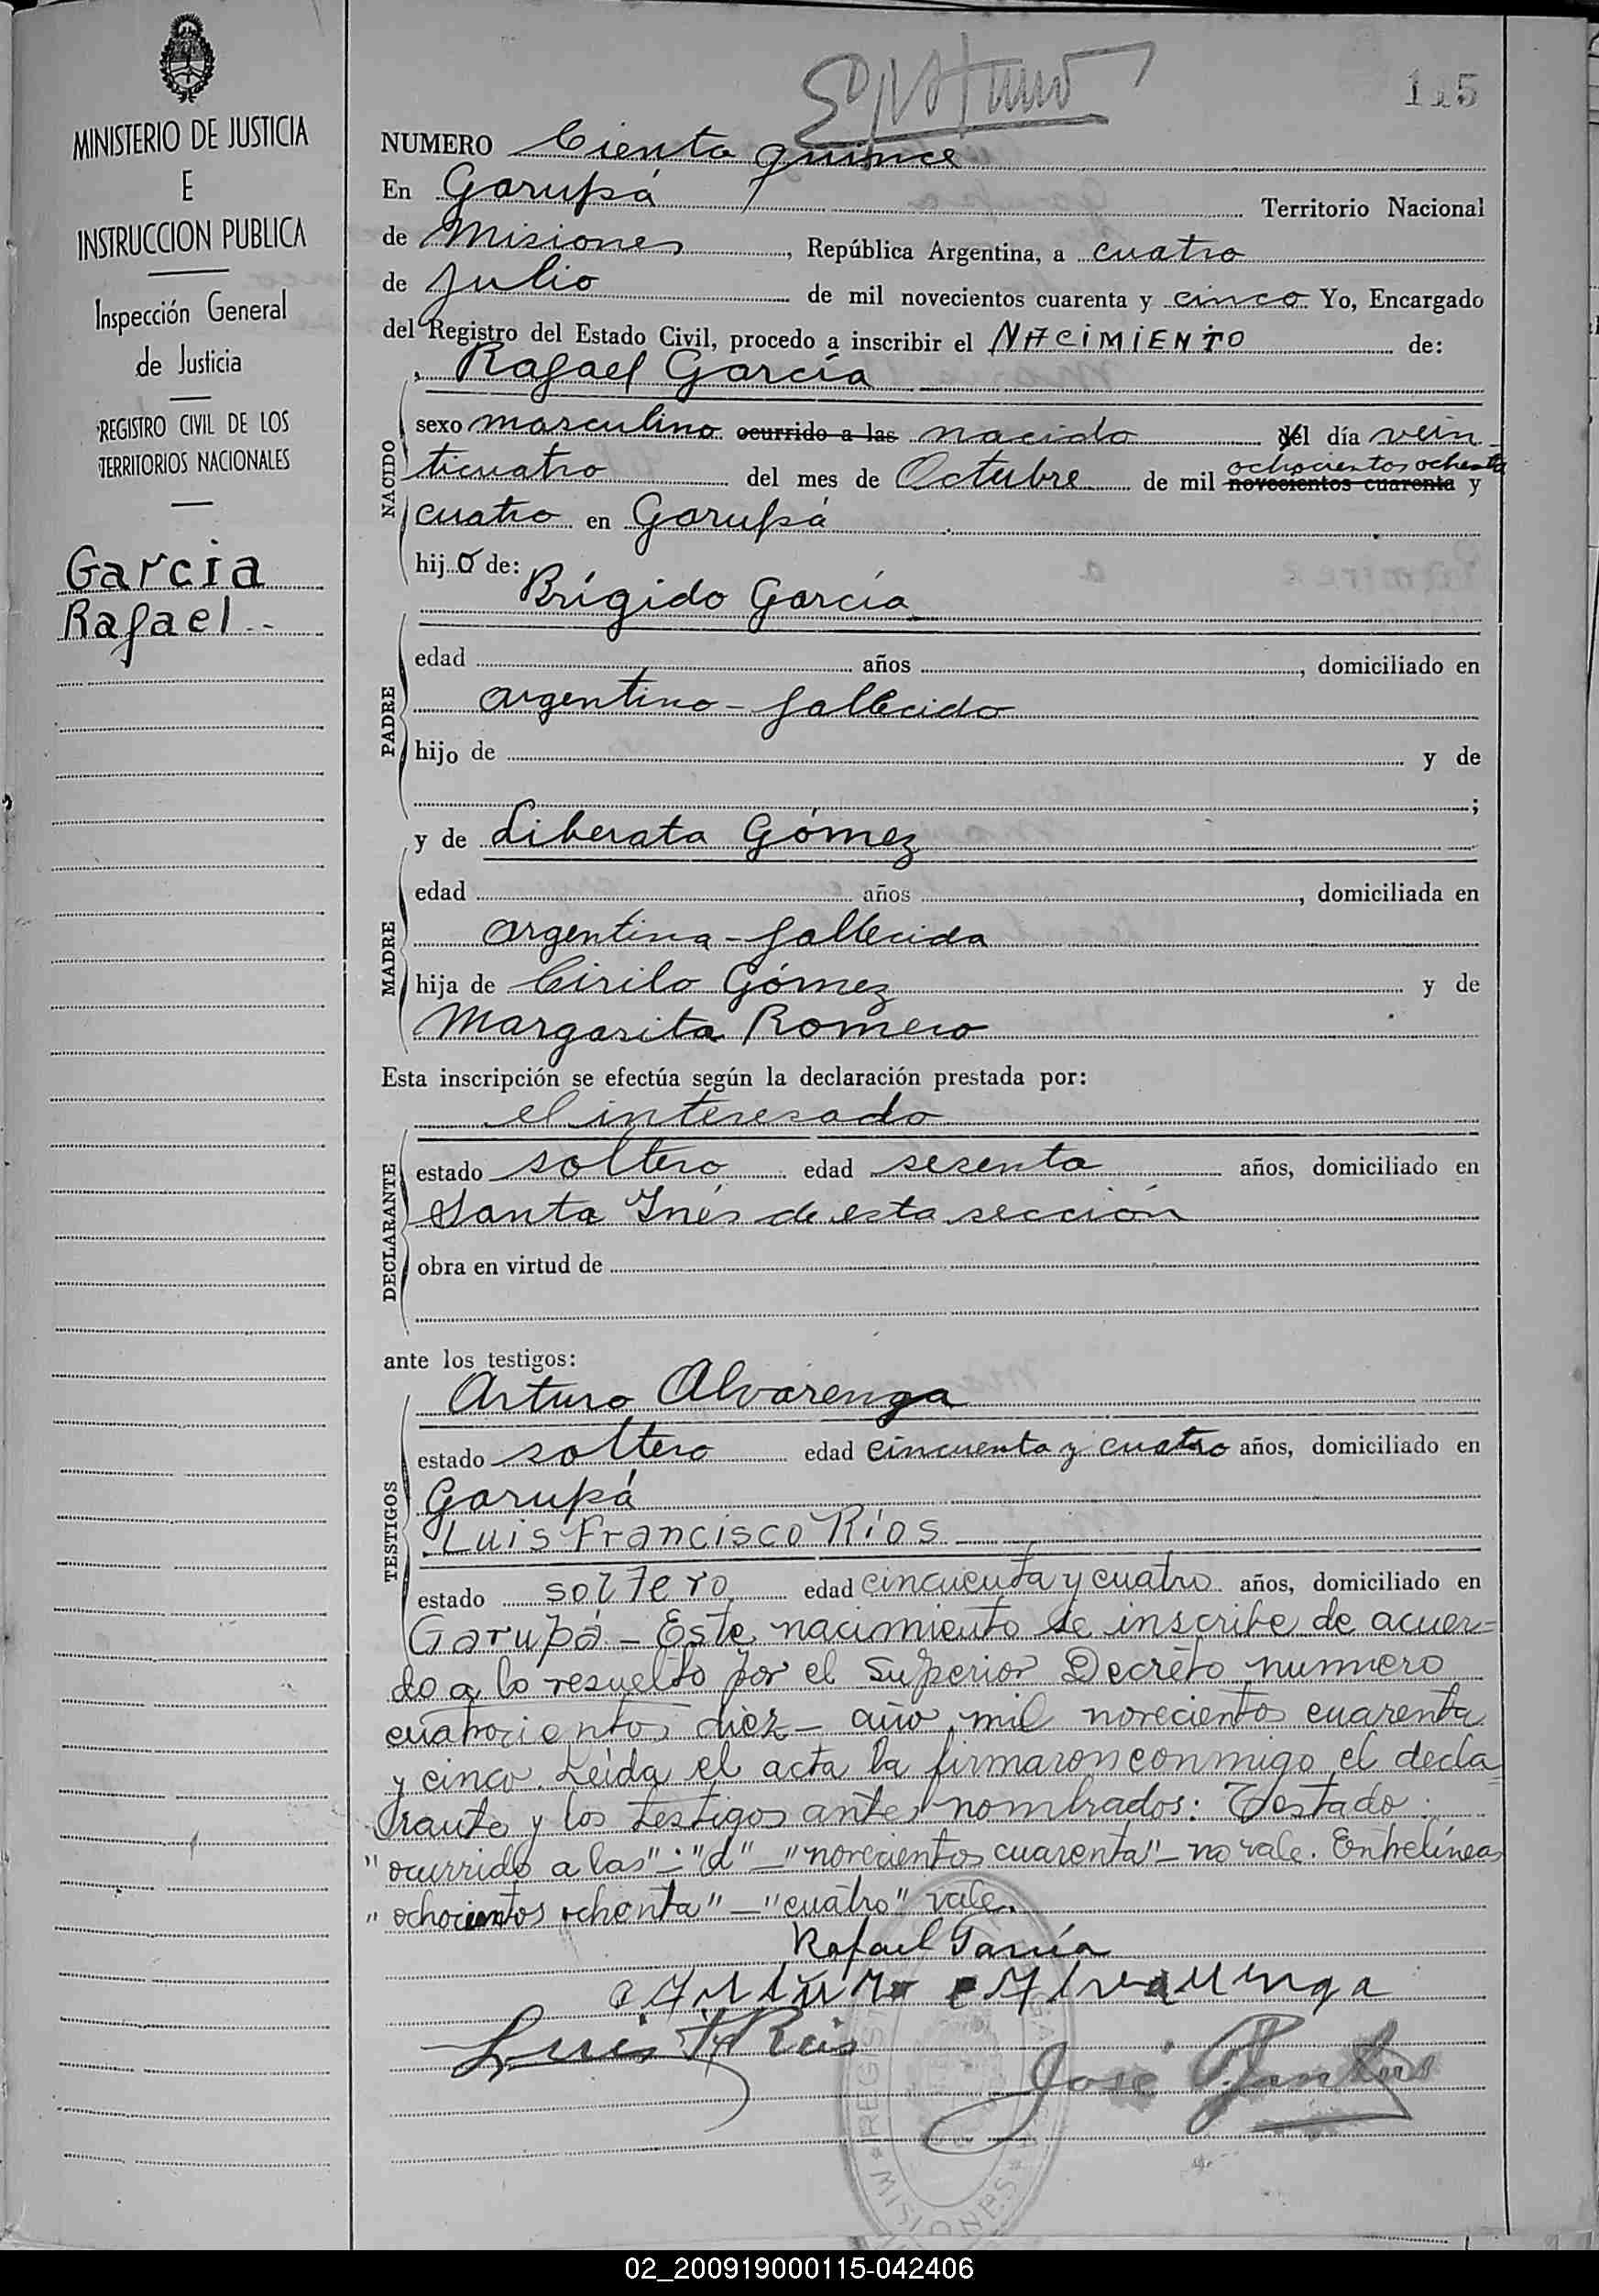 MINISTERIO DE JUSTICIA
E
INSTRUCCION PUBLICA
Inspección General
de Justicia
REGISTRO CIVIL DE LOS
TERRITORIOS NACIONALES
Garcia
Rafael
115
NUMERO Ciento quince
En Garupá Territorio Nacional
de Misiones, República Argentina, a cuatro
de Julio de mil novecientos cuarenta y cinco Yo, Encargado
del Registro del Estado Civil, procedo a inscribir el NACIMIENTO de:
Rafael García
NACIDO
sexo masculino ocurrido a las nacido del día vein-
ochocientos ochenta
ticuatro del mes de Octubre de mil novecientos cuarenta y
cuatro en Garupá
hijo de:
Brígido García
PADRE
edad años, domiciliado en
argentino - fallecido
hijo de y de
;
y de Liberata Gómez
MADRE
edad años, domiciliada en
argentina - fallecida
hija de Cirilo Gómez y de
Margarita Romero
Esta inscripción se efectúa según la declaración prestada por:
el interesado
DECLARANTE
estado soltero edad sesenta años, domiciliado en
Santa Inés de esta sección
obra en virtud de
ante los testigos:
Arturo Alvarenga
TESTIGOS
estado soltero edad cincuenta y cuatro años, domiciliado en
Garupá
Luis Francisco Ríos
estado soltero edad cincuenta y cuatro años, domiciliado en
Garupá - Este nacimiento se inscribe de acuer-
do a lo resuelto por el Superior Decreto numero
cuatrocientos diez - año mil novecientos cuarenta
y cinco. Leida el acta la firmaron conmigo el decla
rante y los testigos antes nombrados: Testado:
"ocurrido a las" - "d" - "novecientos cuarenta" - no vale. Entrelíneas
"ochocientos ochenta" - "cuatro" vale.
Rafael García
Arturo Alvarenga
Luis F Rios
José
REGIST
MISIONES
02_200919000115-042406